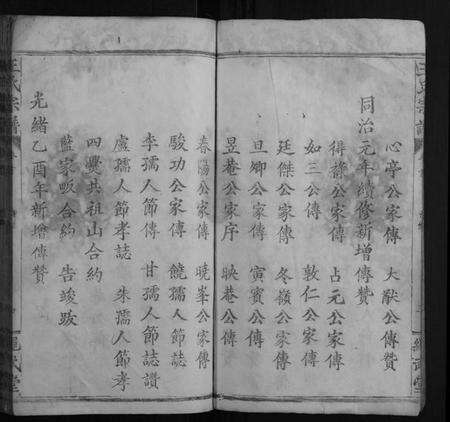 心亭公家傳 大猷公傳贊
同治元年續修新增傳贊
得靜公家傳 占元公家傳
如三公傳 敦仁公家傳
廷傑公家傳 冬嶺公家傳
旦卿公家傳 寅賓公傳
昱菴公家序 映菴公傳
春陽公家傳 曉峯公家傳
駿功公家傳 饒孺人節誌
李孺人節傳 甘孺人節誌讚
盧孺人節孝誌 朱孺人節孝
四雙共祖山合約
藍家畈合約 告竣跋
光緒乙酉年新增傳贊
王氏宗譜
繩武堂